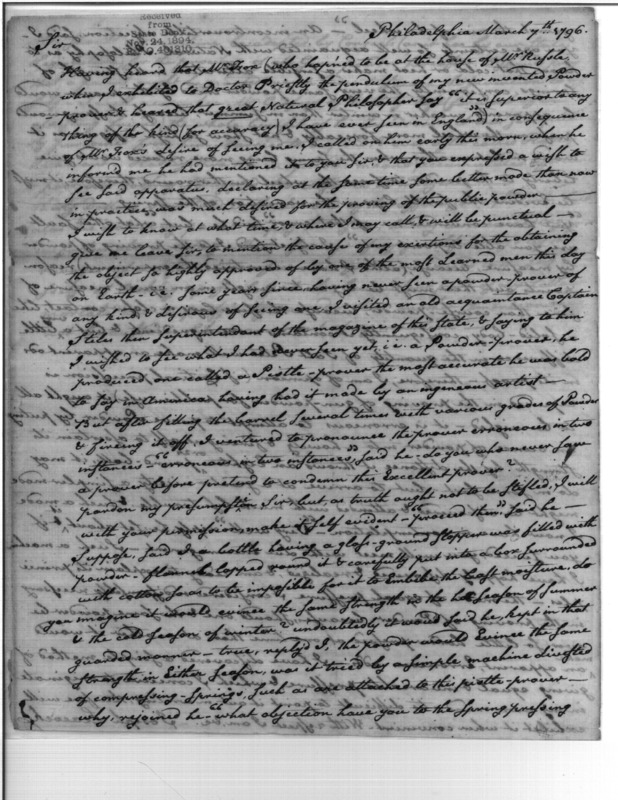 Received
from
1894.
Philadelphia March 7.th 1796.
Sir
Having heard that Mr. Fox (who hoped to be at the house of Mr. Russle
when I exhibited to Doctor Priestly the pendulum of my new invented Powder
prover & heared that great Natural Philosopher say "it is superior to any
thing of the kind (for accuracy) I have ever seen in England) in consequence
of Mr. Fox's desire of seeing me, I called on him early this morn, when he
informed me he had mentioned it to you Sir, & that you expressed a wish to
see said apparatus, declaring at the same time some better mode than now
in practice, was much desired for the proving of the public powder
I wish to know at what time & where I may call, & will be punctual —
give me leave Sir, to mention the cause of my exertions for the obtaining
the object so highly approved of by one of the most Learned men this day
on Earth - i.e. some years since, having never seen a powder prover of
any kind & desirous of seeing one, I visited an old acquaintance Captain
Stiles then Superintendant of the magazine of this State, & saying to him
I wished to see what I had never seen yet, i.e. a Powder-prover, he
produced one called a Pistle-prover the most accurate he was bold
to say in America having had it made by an ingenious artist —
But after filling the barrel several times with various grades of Powder
& fireing it off, I ventured to pronounce the prover erroneous in two
instances - "erroneous in two instances" said he - do you who never saw
a prover before pretend to condemn this Excellent prover?
pardon my presumption Sir, but as truth ought not to be stifled, I will
with your permission, make it self evident - "proceed then" said he —
Suppose, said I a bottle having a glass-ground stopper was filled with
powder - lapped round it & carefully put into a box surrounded
with cotton, so as to be impossible for it to Embibe the least moisture, do
you imagine it would evince the same strength in the hot season of summer
& the cold season of winter? undoubtedly it would said he, kept in that
guarded manner - true, reply'd I, the powder would Evince the same
strength in Either season, was it tried by a simple machine divested
of compressing-springs, such as are attached to this pistle-prover —
why, rejoined he - "what objection have you to the spring pressing